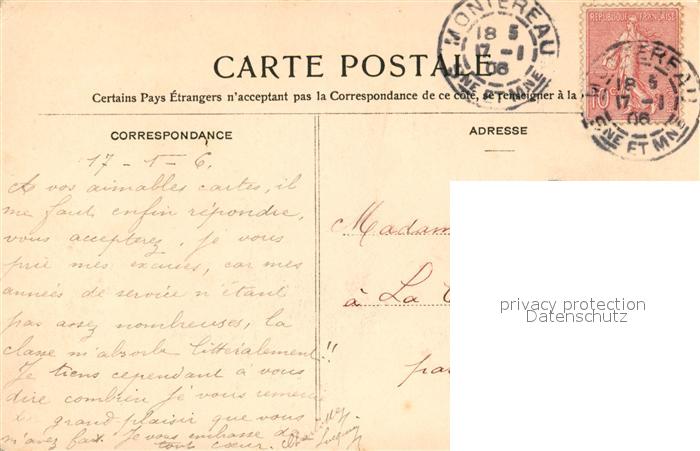 MONTEREAU
18 5
17 - 1
06
SNE ET MNE
REPUBLIQUE FRANÇAISE
10
MONTEREAU
18 5
17 - 1
06
SNE ET MNE
CARTE POSTALE
Certains Pays Étrangers n'acceptant pas la Correspondance de ce côté, se renseigner à la
CORRESPONDANCE
17 - 1 - 6.
A vos aimables cartes, il
me faut enfin répondre,
vous accepterez, je vous
prie mes excuses, car mes
années de service n'étant
pas assez nombreuses, la
classe m'absorbe littéralement!!
Je tiens cependant à vous
dire combien je vous remercie
grand plaisir que vous
m'avez fait. Je vous embrasse de
tout cœur.
ADRESSE
Madam
à La
pa
privacy protection
Datenschutz